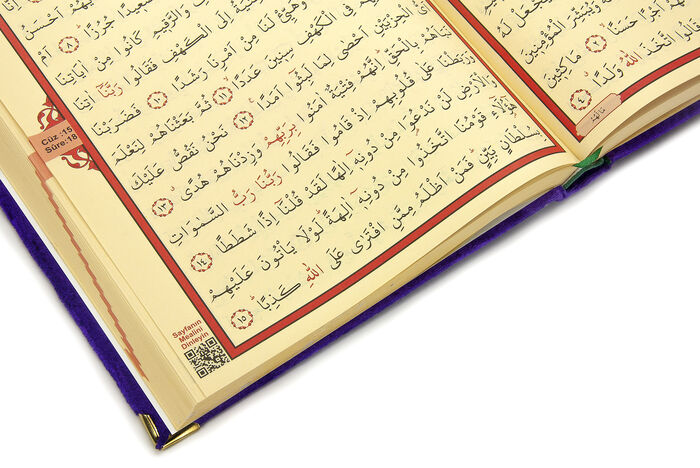 الْمُؤْمِنِينَ
اَجْرًا حَسَنًا ﴿٢﴾ مَاكِثِينَ
اتَّخَذَ اللّٰهُ وَلَدًا ﴿٤﴾
مَا لَهُمْ
اَحْسَنُ
صَعِيدًا جُرُزًا ﴿٨﴾ اَمْ
وَالرَّقِيمِ كَانُوا مِنْ اٰيَاتِنَا
اِلَى الْكَهْفِ فَقَالُوا رَبَّنَا اٰتِنَا
لَنَا مِنْ اَمْرِنَا رَشَدًا ﴿١٠﴾ فَضَرَبْنَا
فِي الْكَهْفِ سِنِينَ عَدَدًا ﴿١١﴾ ثُمَّ بَعَثْنَاهُمْ لِنَعْلَمَ
الْحِزْبَيْنِ اَحْصٰى لِمَا لَبِثُوا اَمَدًا ﴿١٢﴾ نَحْنُ نَقُصُّ عَلَيْكَ
نَبَاَهُمْ بِالْحَقِّ اِنَّهُمْ فِتْيَةٌ اٰمَنُوا بِرَبِّهِمْ وَزِدْنَاهُمْ هُدًى ﴿١٣﴾
وَرَبَطْنَا عَلٰى قُلُوبِهِمْ اِذْ قَامُوا فَقَالُوا رَبُّنَا رَبُّ السَّمٰوَاتِ
وَالْاَرْضِ لَنْ نَدْعُوَا مِنْ دُونِهٖ اِلٰهًا لَقَدْ قُلْنَا اِذًا شَطَطًا ﴿١٤﴾
هٰٓؤُلَٓاءِ قَوْمُنَا اتَّخَذُوا مِنْ دُونِهٖ اٰلِهَةً لَوْلَا يَاْتُونَ عَلَيْهِمْ
بِسُلْطَانٍ بَيِّنٍ فَمَنْ اَظْلَمُ مِمَّنِ افْتَرٰى عَلَى اللّٰهِ كَذِبًا ﴿١٥﴾
Cüz :15
Sûre:18
Sayfanın
Mealini
Dinleyin